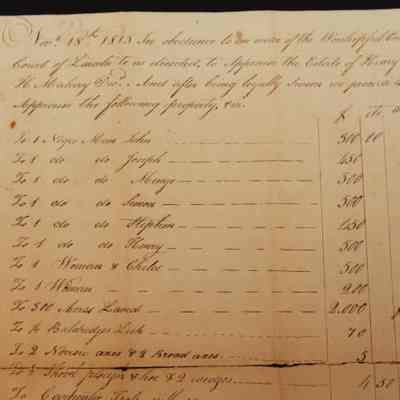 Novr. 18th 1813 In obedience to an order of the Worshipful Co
Court of Lincoln to us directed, to Appraise the Estate of Henry
H. Makeny Decd. And after being legally sworn we proceed
Appraise the following property &c.
$ cts
To 1 Negro Man John 500 00
To 1 do do Joseph 450
To 1 do do Mingo 500
To 1 do do Simon 500
To 1 do do Stephen 450
To 1 do do Henry 500
To 1 Woman & Childs 500
To 1 Woman 200
To 500 Acres Land 2,000
To Lick 70
To 2 Narrow axes & 2 Broad axes 5
To & hoe & 2 wedges 4 50
To